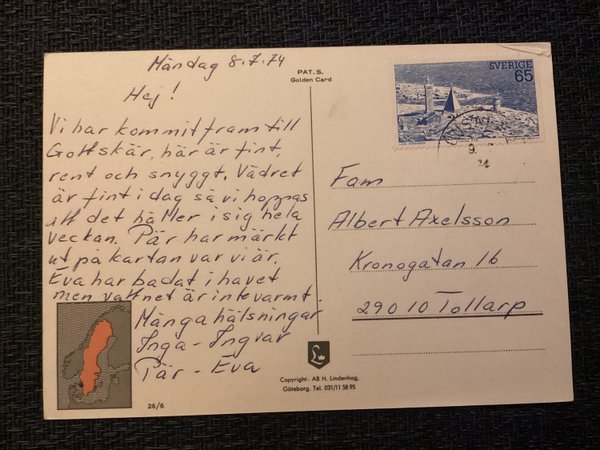 Måndag 8.7.74
Hej!
Vi har kommit fram till
Gottskär, här är fint,
rent och snyggt. Vädret
är fint i dag så vi hoppas
att det håller i sig hela
veckan. Pär har märkt
ut på kartan var vi är,
Eva har badat i havet
men vattnet är inte varmt.
Många hälsningar
Inga - Ingvar
Pär - Eva
26/6
PAT. S.
Golden Card
Copyright: AB H. Lindenhag,
Göteborg, Tel. 031/11 58 95
SVERIGE
65
9.
74
Fam
Albert Axelsson
Kronogatan 16
290 10 Tollarp